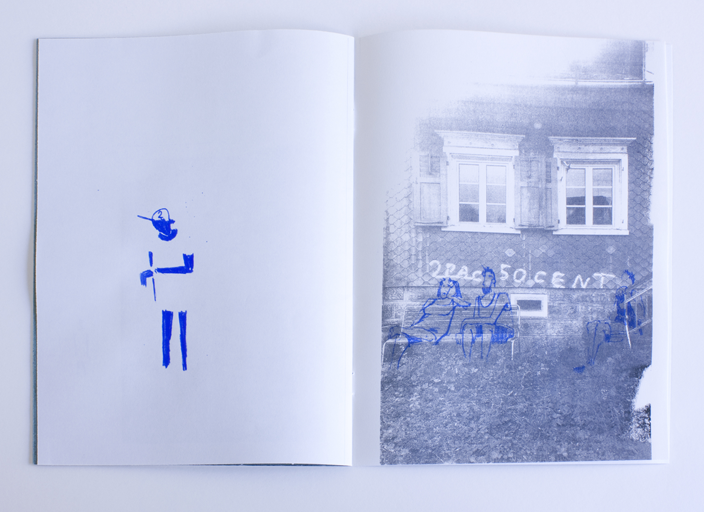 2
2PAC 50.CENT